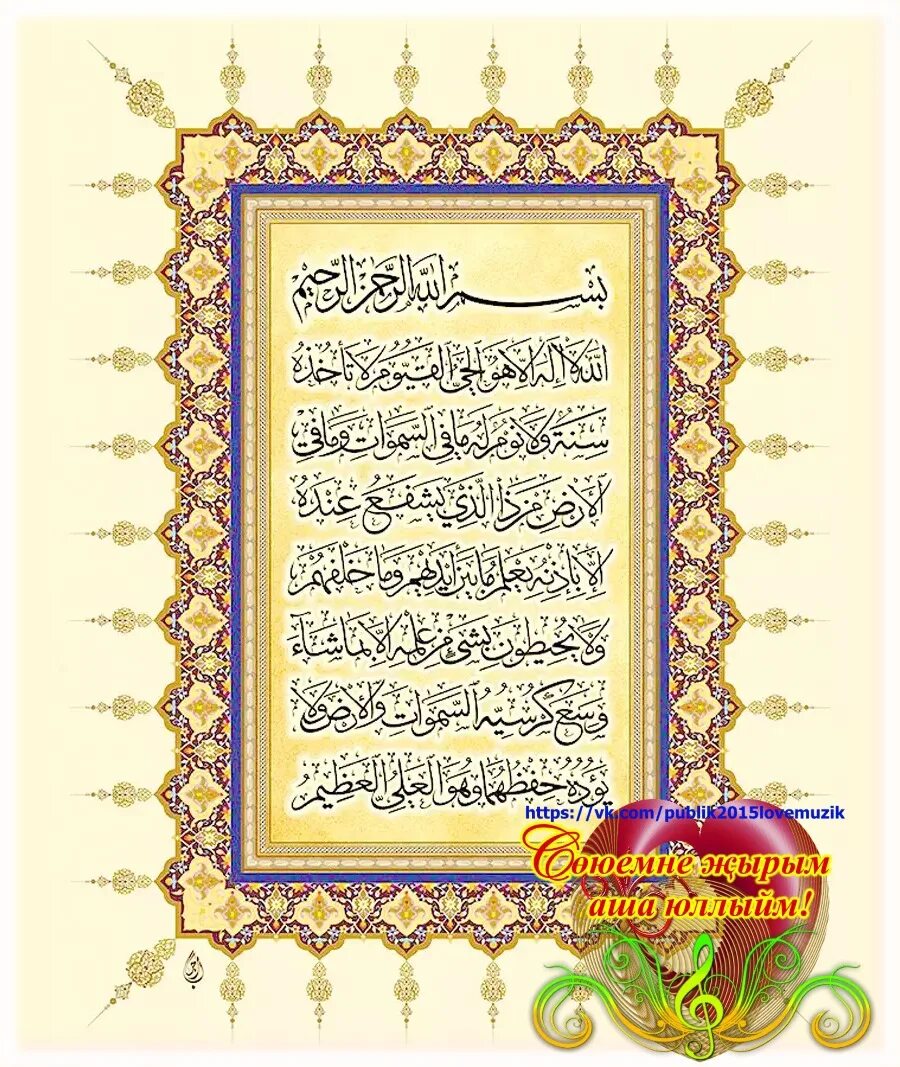 بسم الله الرحمن الرحيم
الله لا إله إلا هو الحي القيوم لا تأخذه
سنة ولا نوم له ما في السموات وما في
الأرض من ذا الذي يشفع عنده
إلا بإذنه يعلم ما بين أيديهم وما خلفهم
ولا يحيطون بشيء من علمه إلا بما شاء
وسع كرسيه السموات والأرض ولا
يؤده حفظهما وهو العلي العظيم
https://vk.com/publik2015lovemuzik
Сөюемне җырым
аша юллыйм!